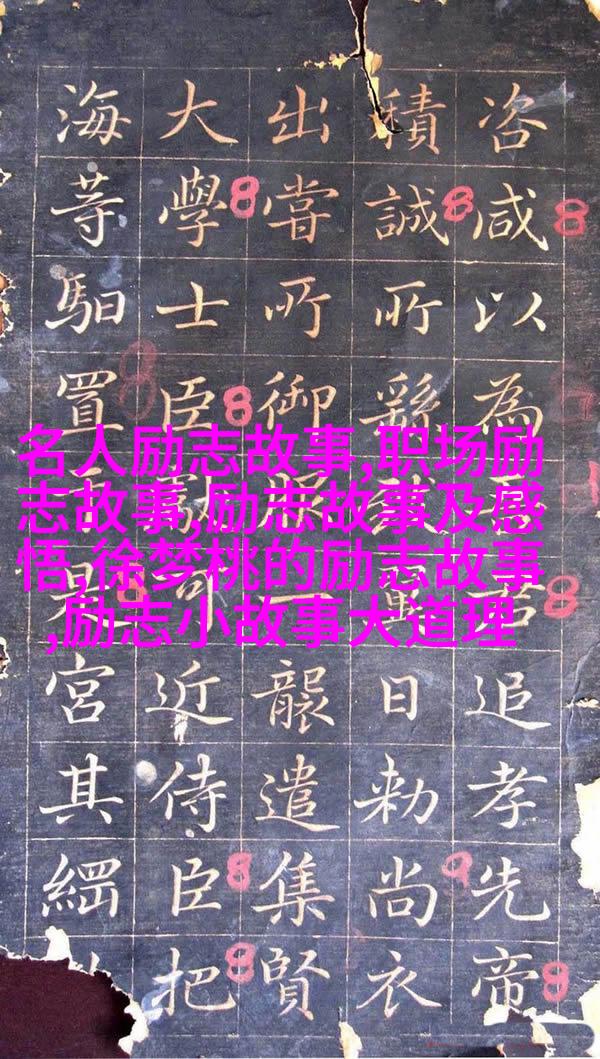 咨咸以為君追孝先帝
積誠所繇日勅尚衣
出嘗所御服一襲遣集賢
大學士臣近侍臣把
海等馹置宮其綱
名人励志故事,职场励
志故事,励志故事及感
悟,徐梦桃的励志故事
,励志小故事大道理